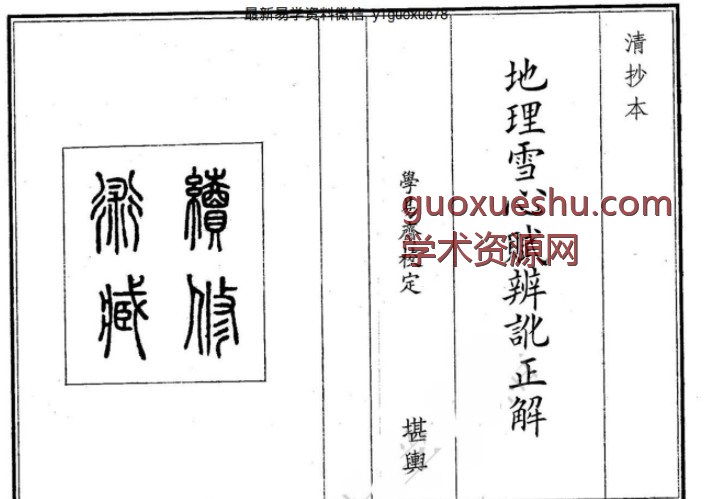 最新易学资料微信 yiguoxue78
清抄本
地理雪心賦辨訛正解
學易齋校定
堪輿
續修
術藏
guoxueshu.com
学术资源网